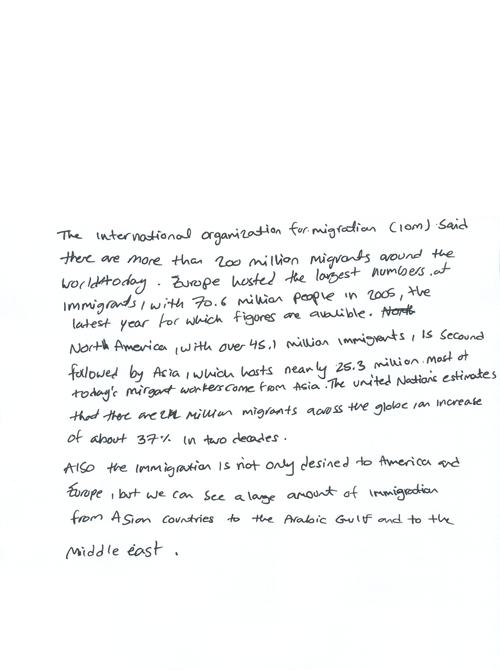 The International organization for migration (IOM) said
there are more than 200 million migrants around the
world today. Europe hosted the largest numbers of
immigrants, with 70.6 million people in 2005, the
latest year for which figures are avalible.
North America, with over 45.1 million immigrants, is second
followed by Asia, which hosts nearly 25.3 million. most of
today's mirgant workers come from Asia. The united Nation's estimates
that there are 214 million migrants across the globe, an increase
of about 37% in two decades.
Also the immigration is not only desined to America and
Europe, but we can see a large amount of immigration
from Asian countries to the Arabic Gulf and to the
Middle east.